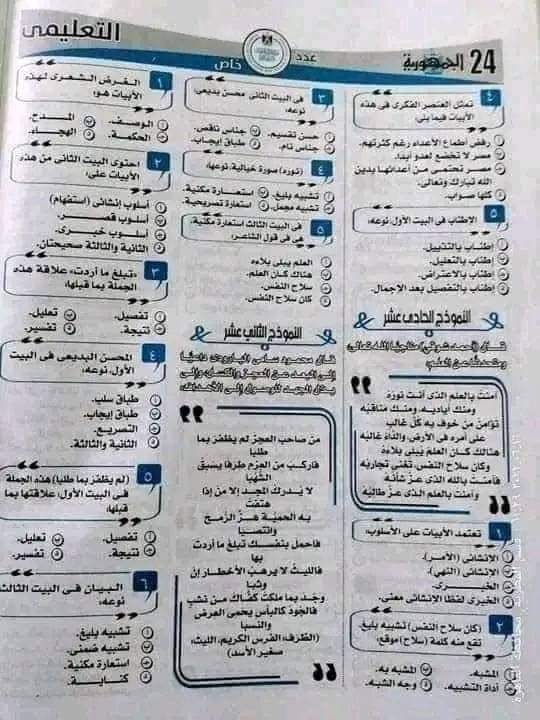 24 الجمهورية
عدد خاص
التعليمى
٤
تمثل العنصر الفكرى فى هذه
الأبيات فيما يلى:
رفض أطماع الأعداء رغم كثرتهم.
مصر لا تخضع لعدو أبدا.
مصر تحتمى من أعدائها بدين
الله تبارك وتعالى.
كلها صواب.
٥
الإطناب فى البيت الأول، نوعه:
إطناب بالتذييل.
إطناب بالتعليل.
إطناب بالاعتراض.
إطناب بالتفصيل بعد الإجمال.
النموذج الحادى عشر
قال (أحمد شوقى) مناجيًا الله تعالى،
ومتحدثًا عن العلم:
آمنت بالعلم الذى أنت نوره
ومنك أياديه، ومنك مناقبه
تؤامن من خوف به كل غالب
على أمره فى الأرض، والناة غالبه
هنالك كان العلم يبلى بلاءه
وكان سلاح النفس، تغنى تجاربه
فآمنت بالله الذى عز شأنه
وآمنت بالعلم الذى عز طالبه
١
تعتمد الأبيات على الأسلوب:
الإنشائى (الأمر).
الإنشائى (النهى).
الخبرى.
الخبرى لفظا الإنشائى معنى.
٢
(كان سلاح النفس) تشبيه بليغ،
تقع منه كلمة (سلاح) موقع:
المشبه.
المشبه به.
أداة التشبيه.
وجه الشبه.
٣
فى البيت الثانى محسن بديعى،
نوعه:
حسن تقسيم.
جناس ناقص.
جناس تام.
طباق إيجاب.
٤
(نوره) صورة خيالية، نوعها:
تشبيه بليغ.
استعارة مكنية.
تشبيه مجمل.
استعارة تصريحية.
٥
فى البيت الثالث استعارة مكنية،
هى فى قول الشاعر:
العلم يبلى بلاءه
هنالك كان العلم.
سلاح النفس.
كان سلاح النفس.
النموذج الثانى عشر
قال محمود سامى البارودى داعيًا
إلى البعد عن العجز والكسل وإلى
بذل الجهد للوصول إلى الأهداف:
من صاحب العجز لم يظفر بما
طلبا
فاركب من العزم طرفا يسبق
الشهبا
لا يدرك المجد إلا من إذا
هتفت
به الحمية هز الرمح
وانتصبا
فاحمل بنفسك تبلغ ما أردت
بها
فالليث لا يرهب الأخطار إن
وثبا
وجد بما ملكت كفاك من نشب
فالجود كالبأس يحمى العرض
والنسبا
(الطرف: الفرس الكريم، الليث:
صغير الأسد)
١
الغرض الشعرى لهذه
الأبيات هو:
الوصف.
المدح.
الحكمة.
الهجاء.
٢
احتوى البيت الثانى من هذه
الأبيات على:
أسلوب إنشائى (استفهام)
أسلوب قصر.
أسلوب خبرى.
الثانية والثالثة صحيحتان.
٣
«تبلغ ما أردت» علاقة هذه
الجملة بما قبلها:
تفصيل.
تعليل.
نتيجة.
تفسير.
٤
المحسن البديعى فى البيت
الأول، نوعه:
طباق سلب.
طباق إيجاب.
التصريع.
الثانية والثالثة.
٥
(لم يظفر بما طلبا) هذه الجملة
فى البيت الأول، علاقتها بما
قبلها:
تفصيل.
تعليل.
نتيجة.
تفسير.
٦
البيان فى البيت الثالث
نوعه:
تشبيه بليغ.
تشبيه ضمنى.
استعارة مكنية.
كناية.